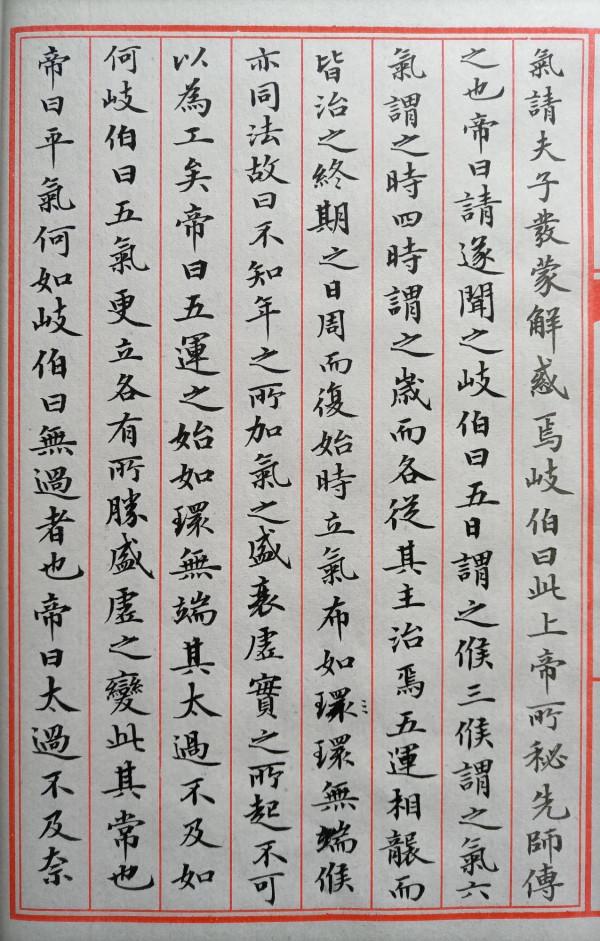 氣請夫子發蒙解惑焉岐伯曰此上帝所秘先師傳
之也帝曰請遂聞之岐伯曰五日謂之候三候謂之氣六
氣謂之時四時謂之歲而各從其主治焉五運相襲而
皆治之終期之日周而復始時立氣布如環環無端候
亦同法故曰不知年之所加氣之盛衰虛實之所起不可
以為工矣帝曰五運之始如環無端其太過不及如
何岐伯曰五氣更立各有所勝盛虛之變此其常也
帝曰平氣何如岐伯曰無過者也帝曰太過不及奈